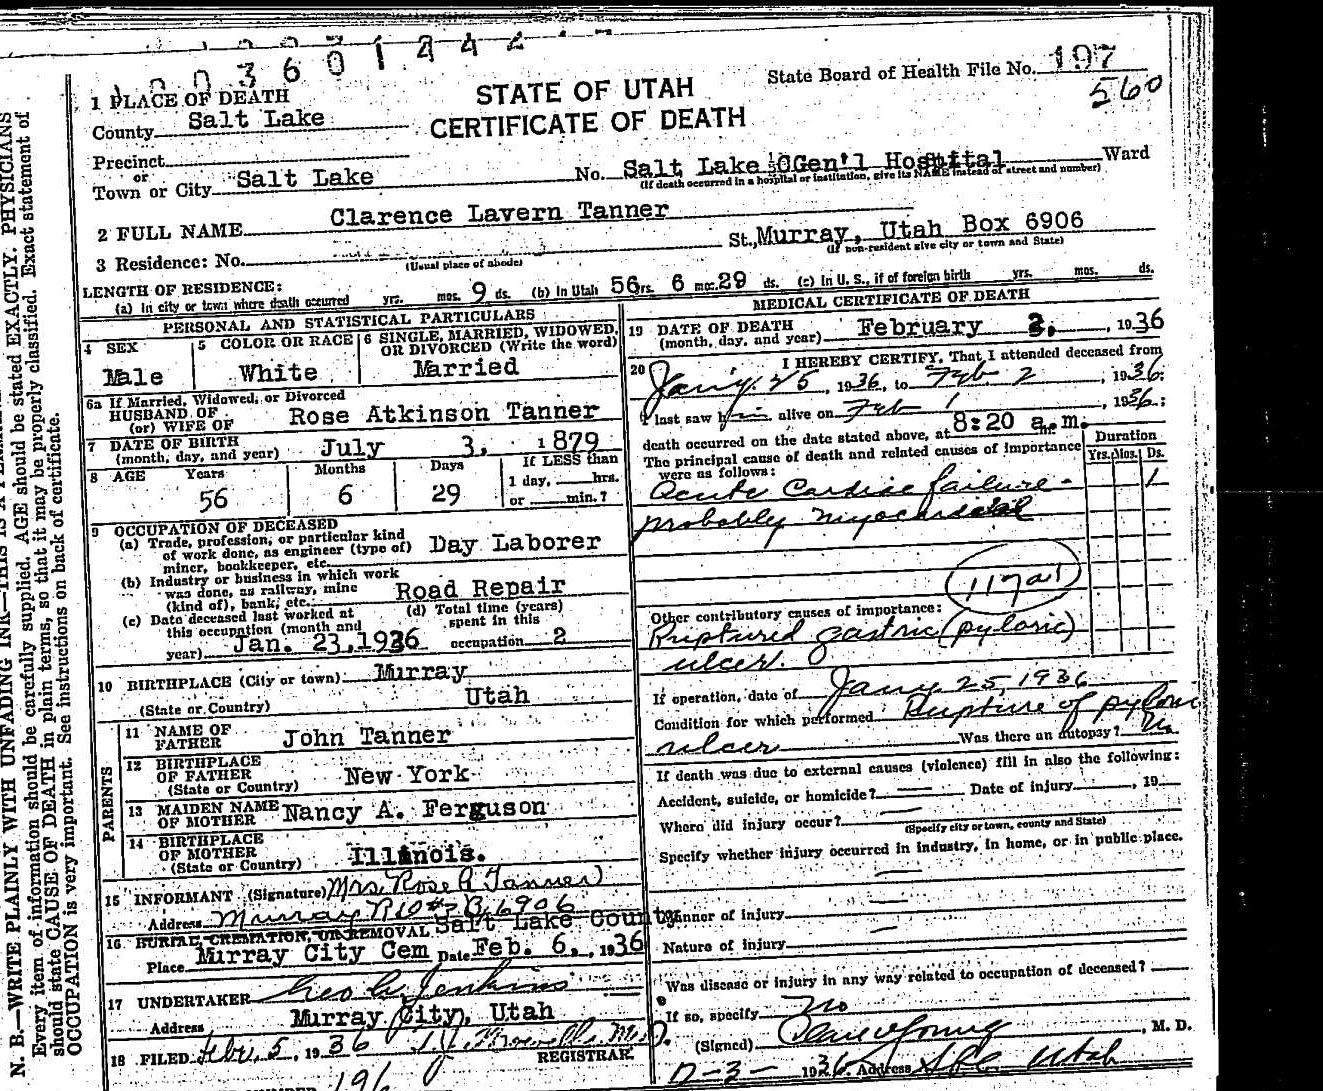 1 PLACE OF DEATH
County Salt Lake
Precinct
or
Town or City Salt Lake
STATE OF UTAH
CERTIFICATE OF DEATH
State Board of Health File No. 197
560
No. Salt Lake Gen'l Hospital Ward
(If death occurred in a hospital or institution, give its NAME instead of street and number)
2 FULL NAME Clarence Lavern Tanner
3 Residence: No. St., Murray, Utah Box 6906
(Usual place of abode) (If non-resident give city or town and State)
LENGTH OF RESIDENCE:
(a) In city or town where death occurred yrs. mos. 9 ds. (b) In Utah 56 yrs. 6 mos. 29 ds. (c) In U. S., if of foreign birth yrs. mos. ds.
PERSONAL AND STATISTICAL PARTICULARS
4 SEX
Male
5 COLOR OR RACE
White
6 SINGLE, MARRIED, WIDOWED,
OR DIVORCED (Write the word)
Married
6a If Married, Widowed, or Divorced
HUSBAND OF
(or) WIFE OF Rose Atkinson Tanner
7 DATE OF BIRTH
(month, day, and year) July 3, 1879
8 AGE Years Months Days If LESS than
1 day, hrs.
56 6 29 or min.?
9 OCCUPATION OF DECEASED
(a) Trade, profession, or particular kind
of work done, as engineer (type of)
miner, bookkeeper, etc. Day Laborer
(b) Industry or business in which work
was done, as railway, mine
(kind of), bank, etc. Road Repair
(c) Date deceased last worked at
this occupation (month and
year) Jan. 23, 1936
(d) Total time (years)
spent in this
occupation 2
10 BIRTHPLACE (City or town) Murray
(State or Country) Utah
PARENTS
11 NAME OF
FATHER John Tanner
12 BIRTHPLACE
OF FATHER
(State or Country) New York
13 MAIDEN NAME
OF MOTHER Nancy A. Ferguson
14 BIRTHPLACE
OF MOTHER
(State or Country) Illinois.
15 INFORMANT (Signature) Mrs. Rose A Tanner
Address Murray B. 6906
16 BURIAL, CREMATION, OR REMOVAL Salt Lake County
Place Murray City Cem Date Feb. 6, 1936
17 UNDERTAKER Geo A Jenkins
Address Murray City, Utah
18 FILED Feb. 5, 1936 M.D.
REGISTRAR
196
MEDICAL CERTIFICATE OF DEATH
19 DATE OF DEATH
(month, day, and year) February 2, 1936
20 I HEREBY CERTIFY, That I attended deceased from
Jany. 25, 1936, to Feb 2, 1936;
I last saw him alive on Feb 1, 1936;
death occurred on the date stated above, at 8:20 a.m.
The principal cause of death and related causes of importance
were as follows:
Duration
Yrs. Mos. Ds.
Acute Cardiac failure - 1
probably myocardial
Other contributory causes of importance:
Ruptured gastric (pyloric)
ulcer.
If operation, date of Jany 25, 1936
Condition for which performed Rupture of pyloric
ulcer Was there an autopsy? No
If death was due to external causes (violence) fill in also the following:
Accident, suicide, or homicide? Date of injury, 19
Where did injury occur?
(Specify city or town, county and State)
Specify whether injury occurred in industry, in home, or in public place.
Manner of injury
Nature of injury
Was disease or injury in any way related to occupation of deceased?
If so, specify No
(Signed) Young, M. D.
1936 Address SLC Utah
N. B.—WRITE PLAINLY WITH UNFADING INK—THIS IS A
Every item of information should be carefully supplied. AGE should be stated EXACTLY. PHYSICIANS
should state CAUSE OF DEATH in plain terms, so that it may be properly classified. Exact statement of
OCCUPATION is very important. See instructions on back of certificate.